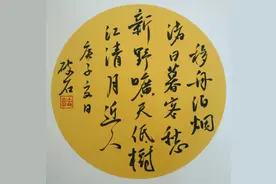 移舟泊烟
渚日暮客愁
新野旷天低樹
江清月近人
庚子文日